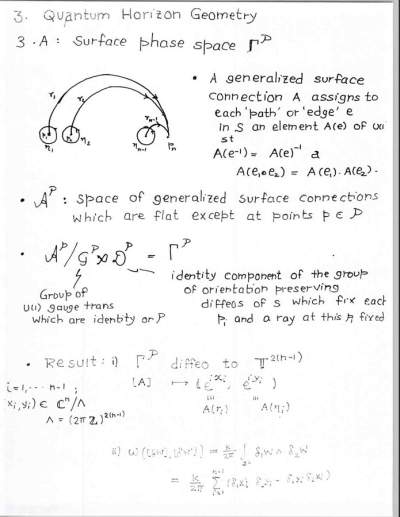 3. Quantum Horizon Geometry
3.A: Surface phase space Γ^P
r₁ r₂ rₙ₋₁
η₁ η₂ ηₙ₋₁ pₙ
• A generalized surface
connection A assigns to
each 'path' or 'edge' e
in S an element A(e) of U(1)
st
A(e⁻¹) = A(e)⁻¹ &
A(e₁∘e₂) = A(e₁)·A(e₂).
• 𝒜^P : space of generalized surface connections
which are flat except at points p ∈ P
• 𝒜^P/𝒢^P ⋊ 𝒟^P = Γ^P
Group of
U(1) gauge trans
which are identity on P
identity component of the group
of orientation preserving
diffeos of S which fix each
pᵢ and a ray at this pᵢ fixed
• Result: i) Γ^P diffeo to 𝕋^2(n-1)
[A] ↦ (e^ixᵢ, e^iyᵢ)
A(rᵢ) A(ηᵢ)
i=1,--- n-1 ;
xᵢ,yᵢ) ∈ ℂⁿ/Λ
Λ = (2πℤ)^2(n-1)
ii) = k/2π ∫ δ₁W ∧ δ₂W
= k/2π Σ (δ₁xᵢ δ₂yᵢ - δ₁yᵢ δ₂xᵢ)